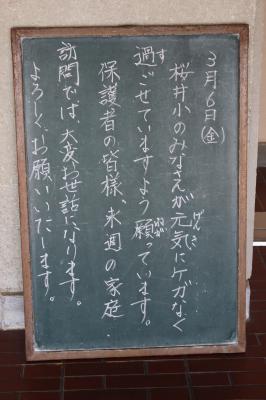 3月6日(金)
桜井小のみなさんが元気にケガなく
過ごせていますよう願っています。
保護者の皆様、来週の家庭
訪問では、大変お世話になります。
よろしくお願いいたします。